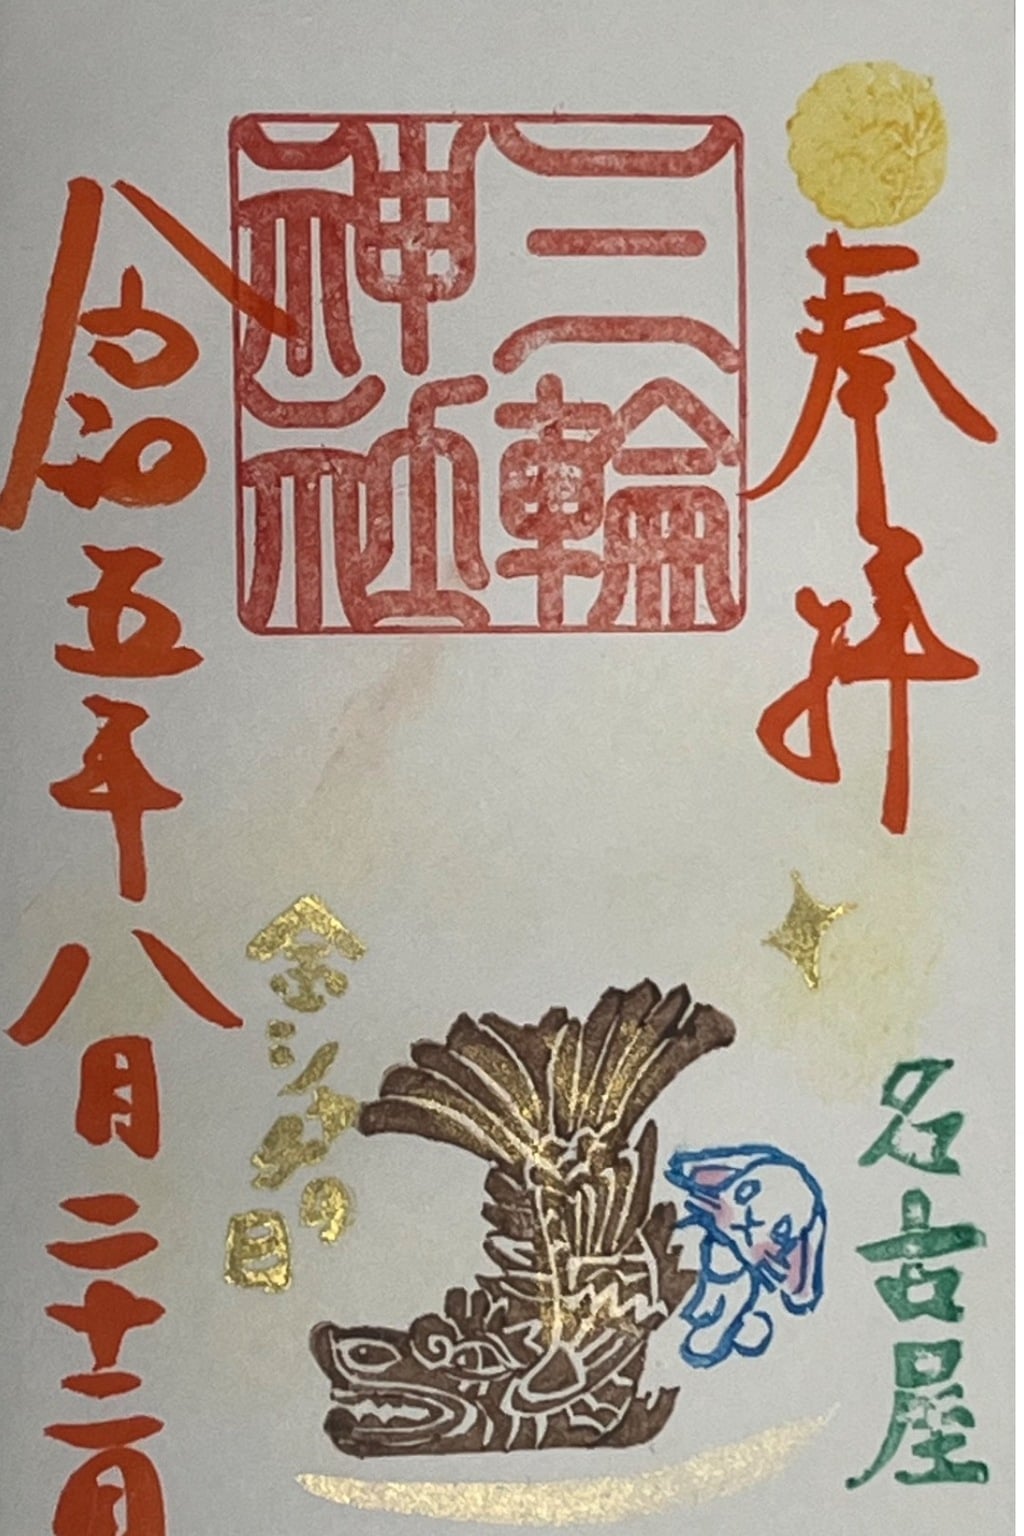 奉拝
名古屋
三輪
神社
金シャチの日
令和五年八月二十二日